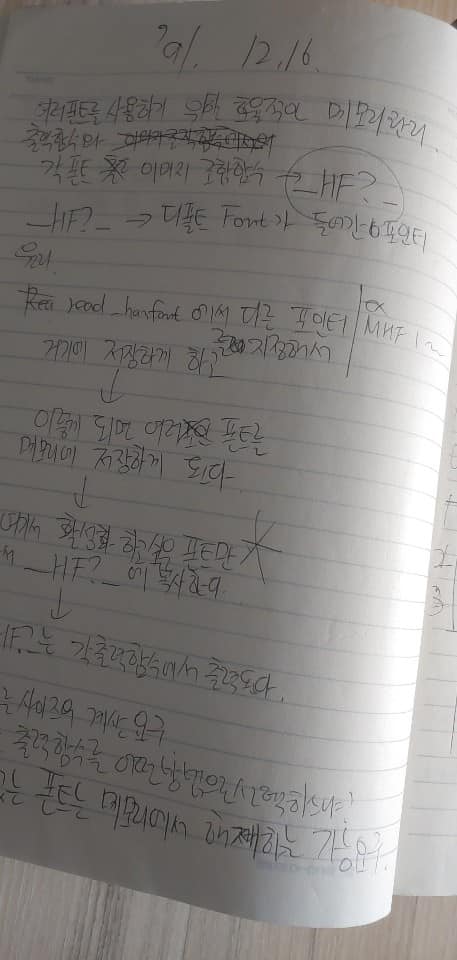 '91. 12. 16.
여러폰트를 사용하기 위한 효율적인 메모리관리.
출력함수와
각 폰트 이미지 조합함수 → __HF?_
__HF?_ → 디폴트 Font가 들어간 포인터
우리
read_hanfont 에서 다른 포인터 | α
거기에 저장하게 하고 지정해서 | MHF1~
↓
이렇게 되면 여러 폰트를
메모리에 저장하게 되다.
↓
여기서 활성화 하고싶은 폰트만
__HF?_ 에 복사한다.
↓
HF?는 각출력함수에서 출력되다.
는 사이즈의 계산 요구
출력함수를 어떤방법으로 선택하느냐?
있는 폰트는 메모리에서 해제하는 기능요구.